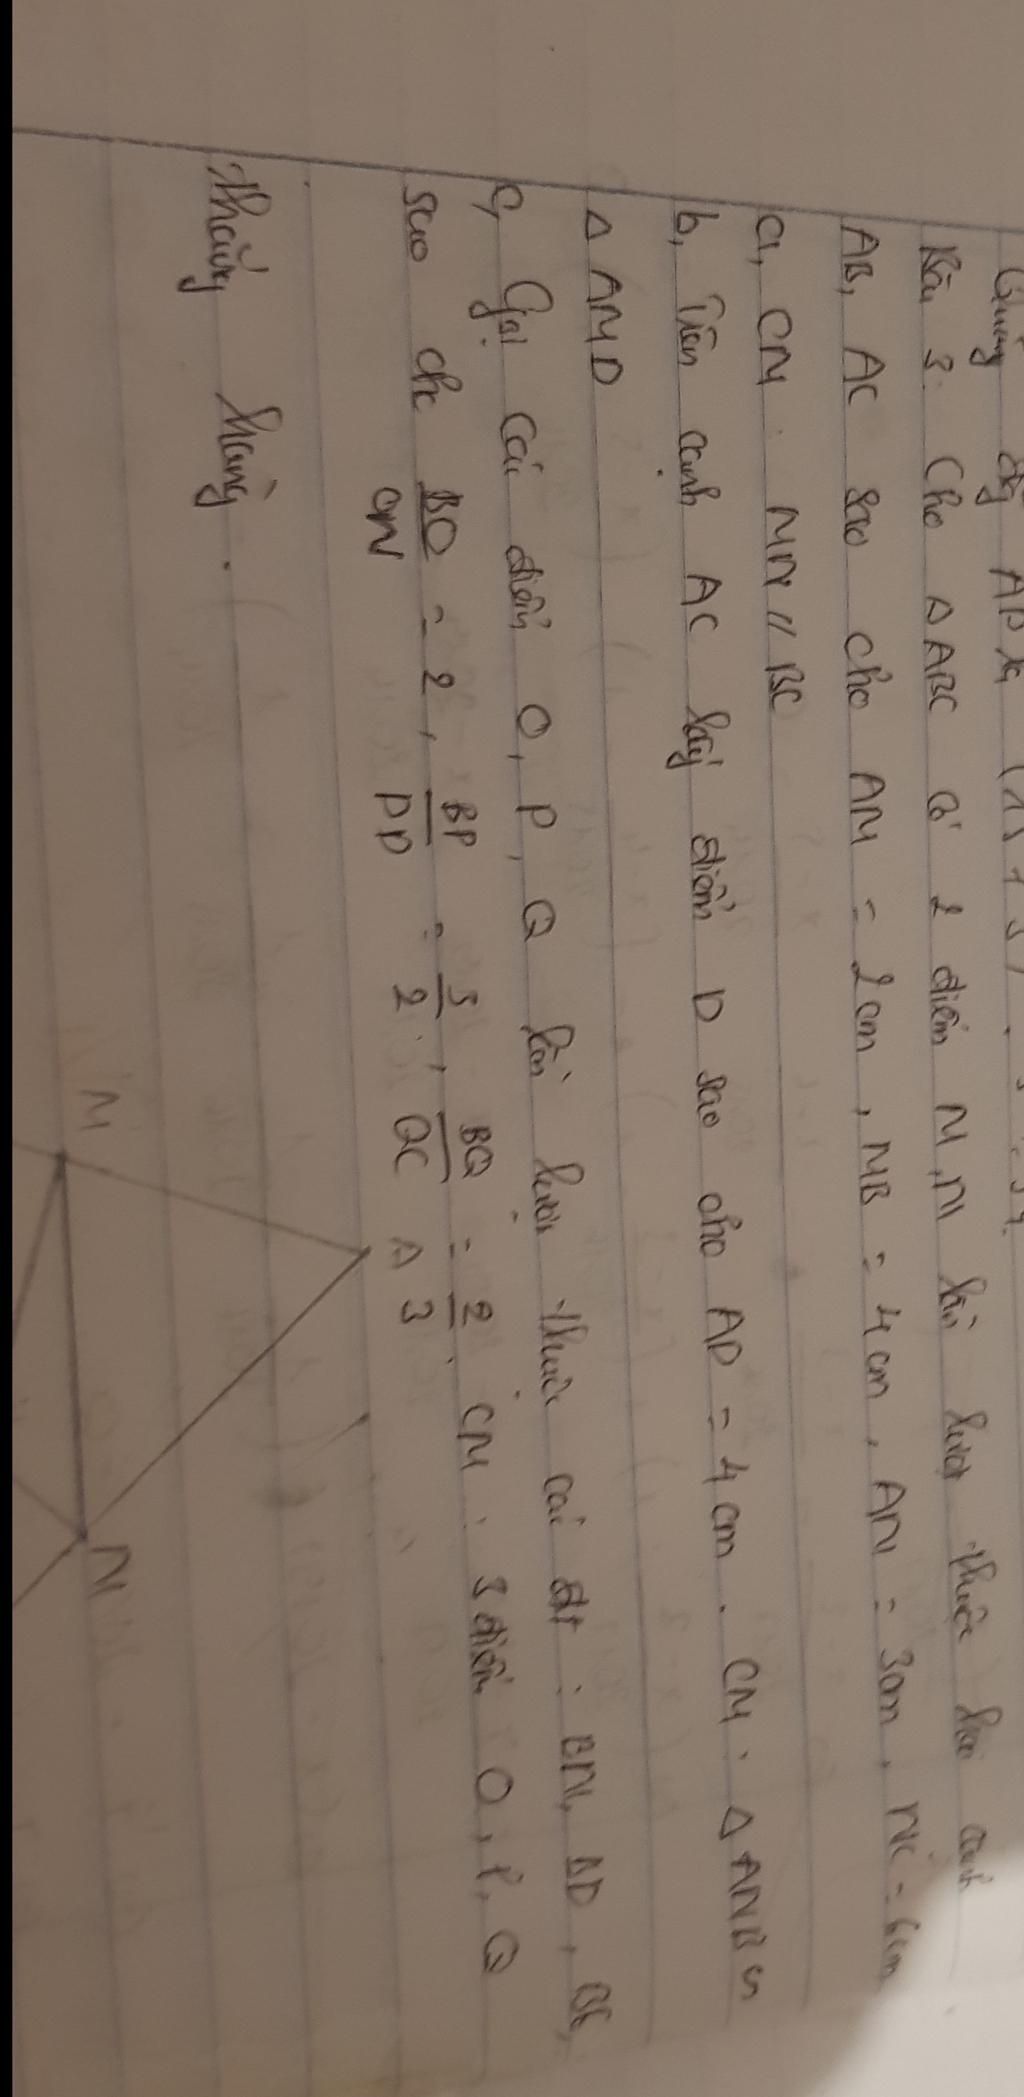 Bài 3. Cho ∆ABC có 2 điểm M, N lần lượt thuộc hai cạnh
AB, AC sao cho AM = 2cm, MB = 4cm, AN = 3cm, NC = 6cm
a, CM: MN // BC
b, Trên cạnh AC lấy điểm D sao cho AD = 4cm. CM: ∆ANB ∽
∆ AMD
c, Gọi các điểm O, P, Q lần lượt thuộc các đt: BN, BD, BC,
sao cho BO/ON = 2, BP/PD = 5/2, BQ/QC = 2/3. CM: 3 điểm O, P, Q
thẳng hàng.
A
M
N